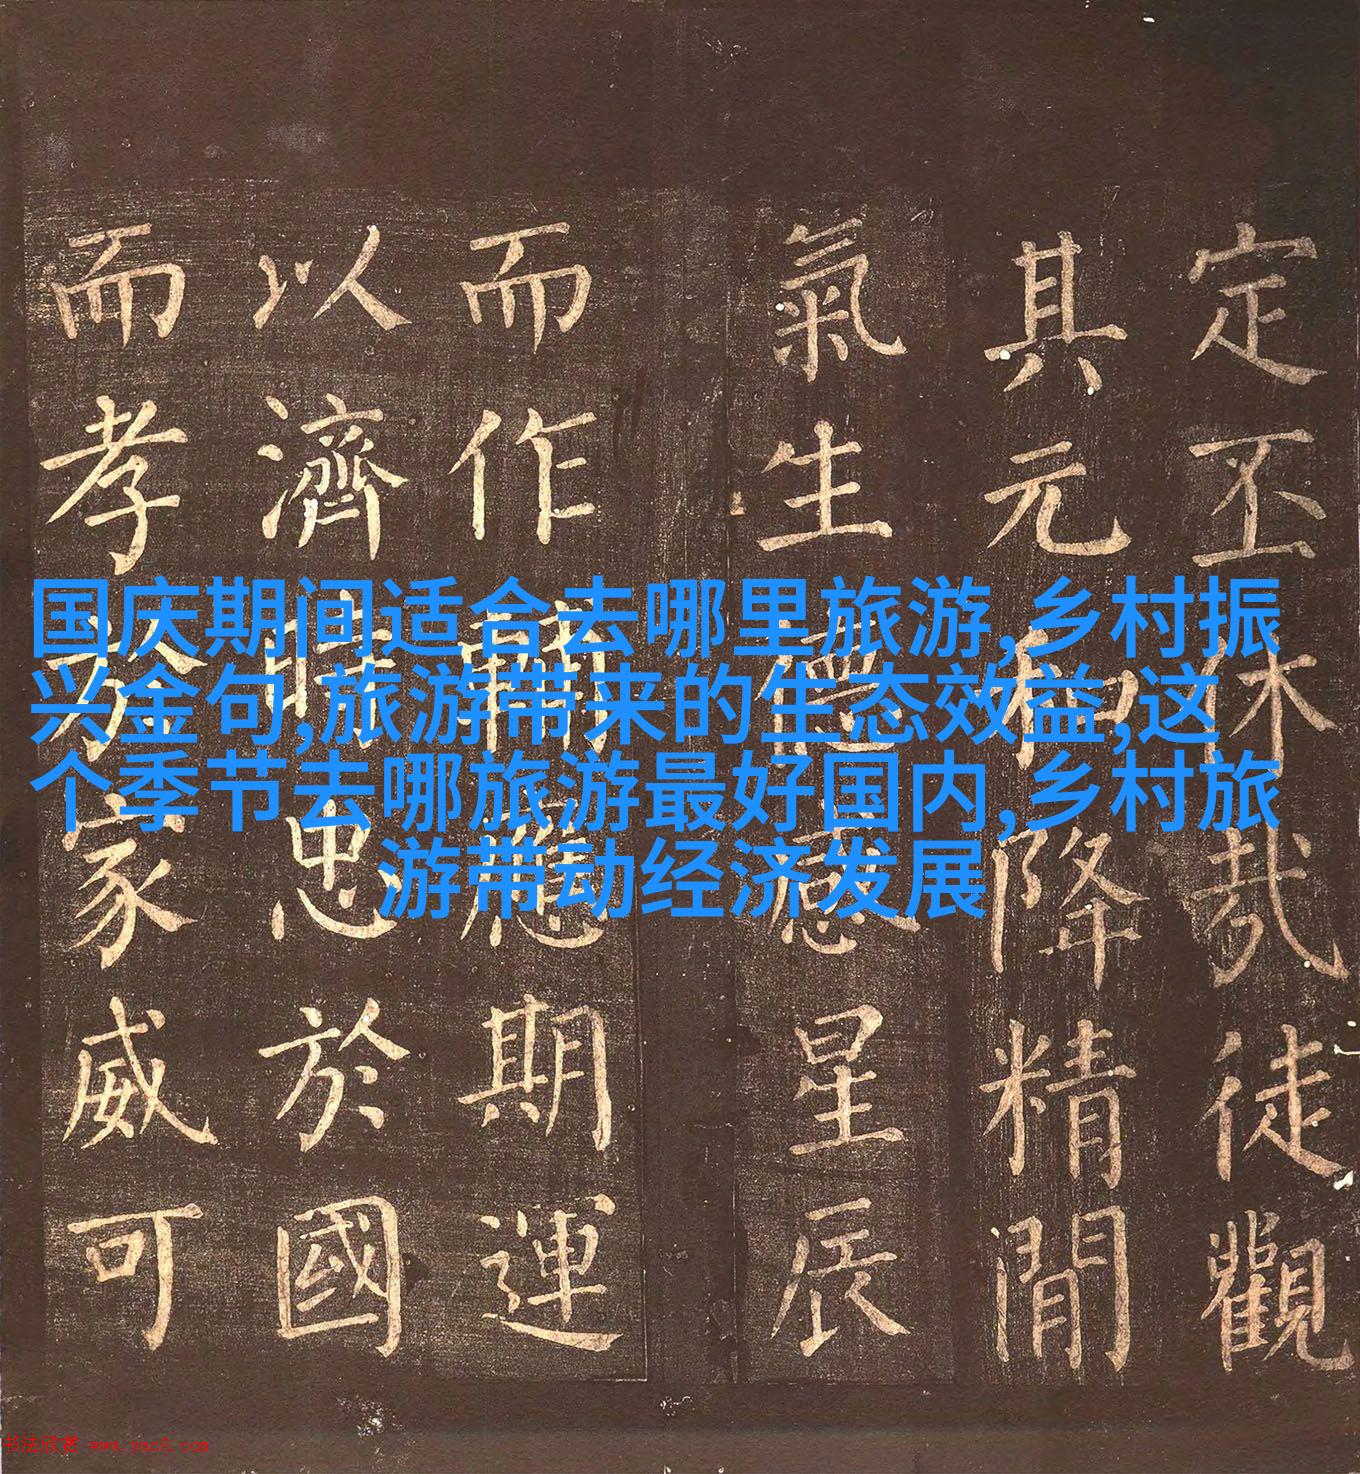 国庆期间适合去哪里旅游,乡村振
兴金句,旅游带来的生态效益,这
个季节去哪旅游最好国内,乡村旅
游带动经济发展
定丕休哉徒觀
其元和降精閒
氣生德感星辰
而作輔應期運
以濟時忠於國
而孝於家威可
书法欣赏 www.yac8.com